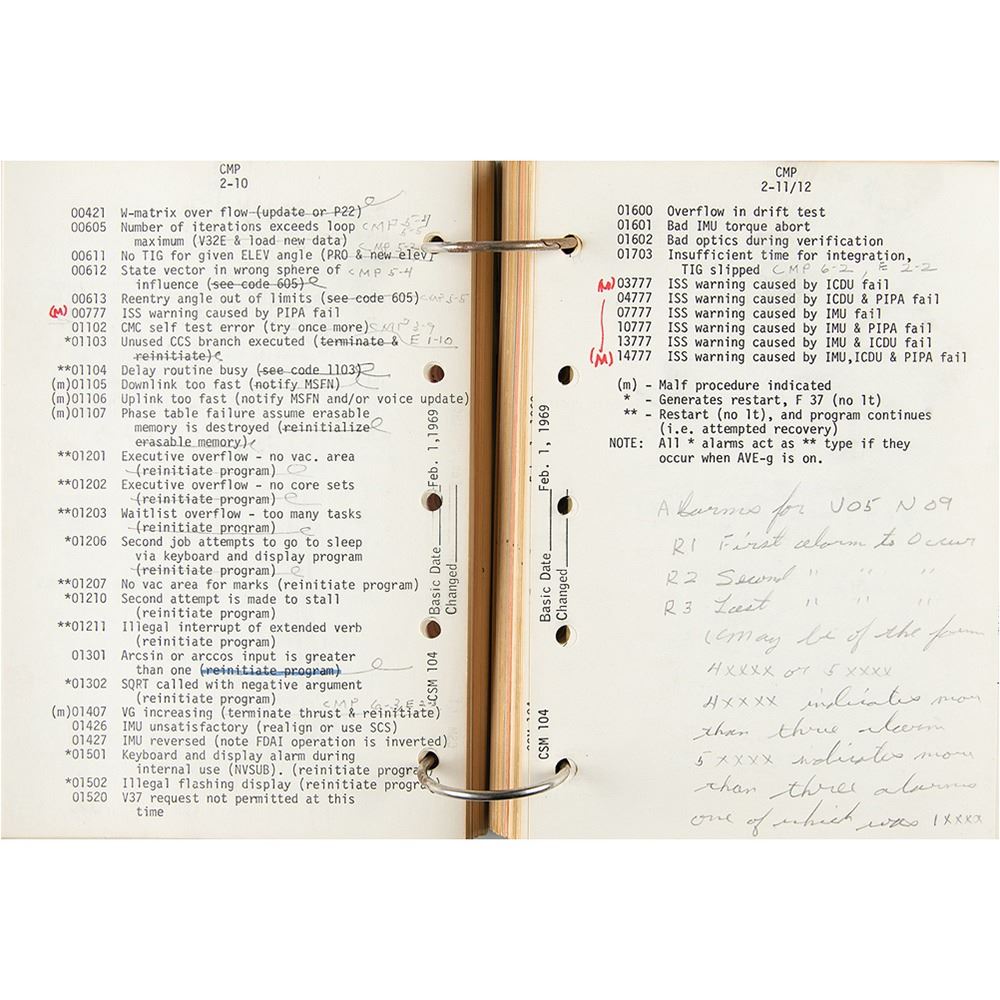 CMP
2-10
00421 W-matrix over flow (update or P22)
00605 Number of iterations exceeds loop CMP 5-4
5-5
maximum (V32E & load new data)
00611 No TIG for given ELEV angle (PRO & new elev)
CMP 5-2
00612 State vector in wrong sphere of CMP 5-4
influence (see code 605)
00613 Reentry angle out of limits (see code 605) CMP 5-5
(M) 00777 ISS warning caused by PIPA fail
01102 CMC self test error (try once more) CMP 3-9
*01103 Unused CCS branch executed (terminate & E 1-10
reinitiate)
**01104 Delay routine busy (see code 1103)
(m)01105 Downlink too fast (notify MSFN)
(m)01106 Uplink too fast (notify MSFN and/or voice update)
(m)01107 Phase table failure assume erasable
memory is destroyed (reinitialize
erasable memory)
**01201 Executive overflow - no vac. area
(reinitiate program)
**01202 Executive overflow - no core sets
(reinitiate program)
**01203 Waitlist overflow - too many tasks
(reinitiate program)
*01206 Second job attempts to go to sleep
via keyboard and display program
(reinitiate program)
**01207 No vac area for marks (reinitiate program)
*01210 Second attempt is made to stall
(reinitiate program)
**01211 Illegal interrupt of extended verb
(reinitiate program)
01301 Arcsin or arccos input is greater
than one (reinitiate program)
*01302 SQRT called with negative argument
(reinitiate program)
CMP 6-3
(m)01407 VG increasing (terminate thrust & reinitiate)
01426 IMU unsatisfactory (realign or use SCS)
01427 IMU reversed (note FDAI operation is inverted)
*01501 Keyboard and display alarm during
internal use (NVSUB). (reinitiate progra
*01502 Illegal flashing display (reinitiate progra
01520 V37 request not permitted at this
time
CSM 104 Basic Date Feb. 1,1969
Changed
CMP
2-11/12
01600 Overflow in drift test
01601 Bad IMU torque abort
01602 Bad optics during verification
01703 Insufficient time for integration,
TIG slipped CMP 6-2, E 2-2
(M) 03777 ISS warning caused by ICDU fail
04777 ISS warning caused by ICDU & PIPA fail
07777 ISS warning caused by IMU fail
10777 ISS warning caused by IMU & PIPA fail
13777 ISS warning caused by IMU & ICDU fail
(M) 14777 ISS warning caused by IMU,ICDU & PIPA fail
(m) - Malf procedure indicated
* - Generates restart, F 37 (no lt)
** - Restart (no lt), and program continues
(i.e. attempted recovery)
NOTE: All * alarms act as ** type if they
occur when AVE-g is on.
Alarms for V05 N09
R1 First alarm to Occur
R2 Second " " "
R3 Last " " "
(May be of the form
4xxxx or 5xxxx
4xxxx indicates more
than three alarm
5xxxx indicates more
than three alarms
one of which was 1xxxx
CSM 104 Basic Date Feb. 1, 1969
Changed